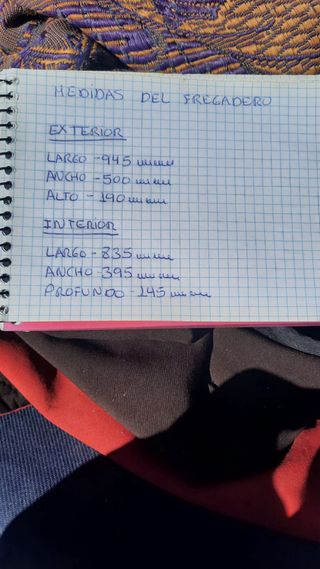 MEDIDAS DEL FREGADERO
EXTERIOR
LARGO - 945 mm
ANCHO - 500 mm
ALTO - 190 mm
INTERIOR
LARGO - 835 mm
ANCHO - 395 mm
PROFUNDO - 145 mm